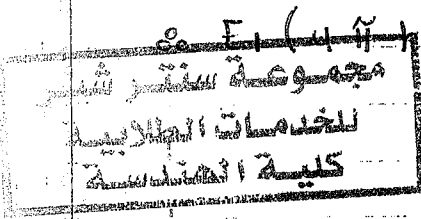 مجموعة سنتر شبر
للخدمات الطلابية
كلية الهندسة